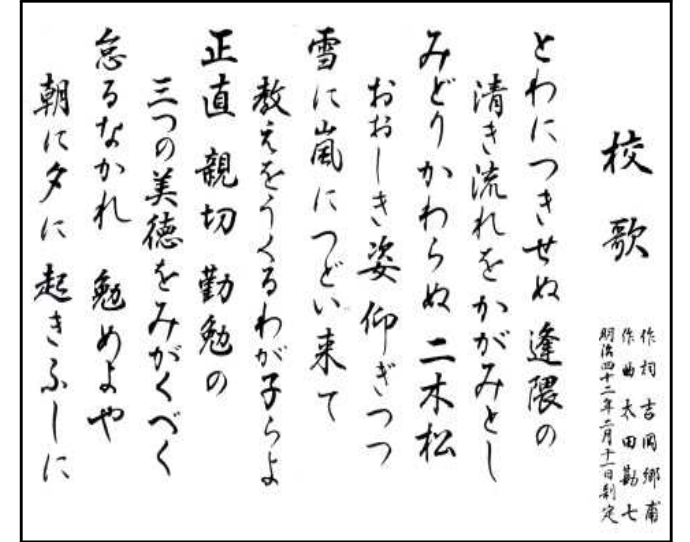 校歌
作詞 吉岡郷甫
作曲 太田勘七
明治四十二年二月十一日制定
とわにつきせぬ 逢隈の
清き流れをかがみとし
みどりかわらぬ 二木松
おおしき姿 仰ぎつつ
雪に嵐に つどい来て
教えをうくる わが子らよ
正直 親切 勤勉の
三つの美徳をみがくべく
怠るなかれ 勉めよや
朝に夕に 起きふしに